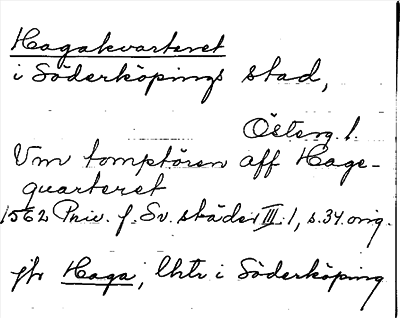 Hagakvarteret
i Söderköpings stad,
Österg. l.
Vm tomptören aff Hage-
quarteret
1562 Priv. f. Sv. städer III:1, s.34. orig.
jfr Haga, i Söderköping